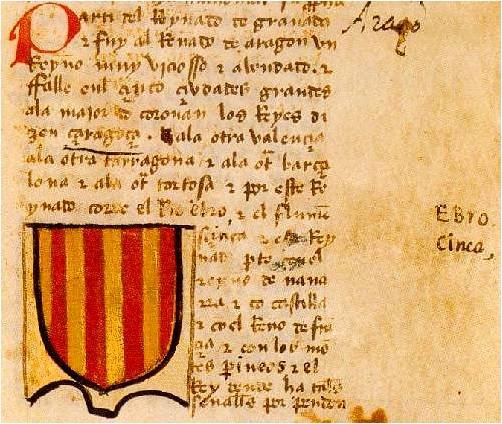 Parti del Reynado de granada
τ fuy al Renado de aragon vn
Reyno muy viciosso τ abondado. τ
ffalle en el çinco çiudades grandes
ala mayor do coronan los Reyes di
zen çaragoça. τ ala otra valençia
ala otra tarragona τ ala otª barçe
lona τ ala otª tortosa τ por este Re
ynado corre el Rio ebro, τ el flumen
çinca τ este Rey
nado parte con el
reyno de nava
rra τ co castilla
τ co el Reno de fra
çia τ con los mo
tes pineos τ el
Rey dende ha tales
señalles por pendon
Arago
EBro.
Cinca,